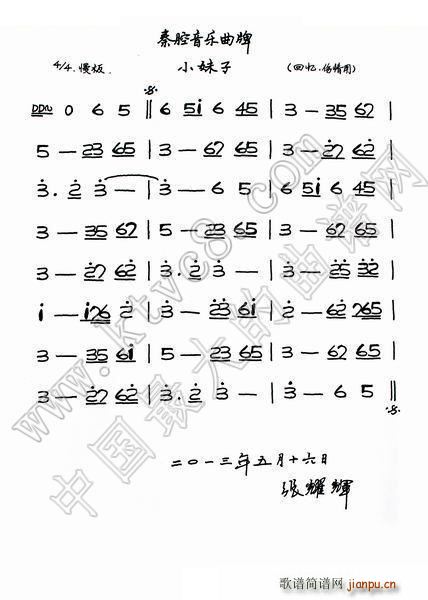 秦腔音乐曲牌
4/4.慢板. 小妹子 (回忆.伤情用)
0 6 5 ‖ 6 5i 6 45 | 3 — 35 62 |
5 — 23 65 | 3 — 62 65 | 3 — 27 62 |
3. 2 3 — | 3 — 6 5 | 6 5i 6 45 |
3 — 35 62 | 5 — 23 65 | 3 — 62 65 |
3 — 27 62 | 3. 2 3 — | 3 — 25 32 |
i — i26 2 | 3 — 23 6i | 2 — 62 265 |
3 — 35 6i | 5 — 23 65 | 3 — 62 65 |
3 — 27 62 | 3. 2 3 — | 3 — 6 5 ‖
二〇一三年五月十六日
张耀辉
www.ktvc8.com
中国最大的曲谱网
歌谱简谱网
jianpu.cn